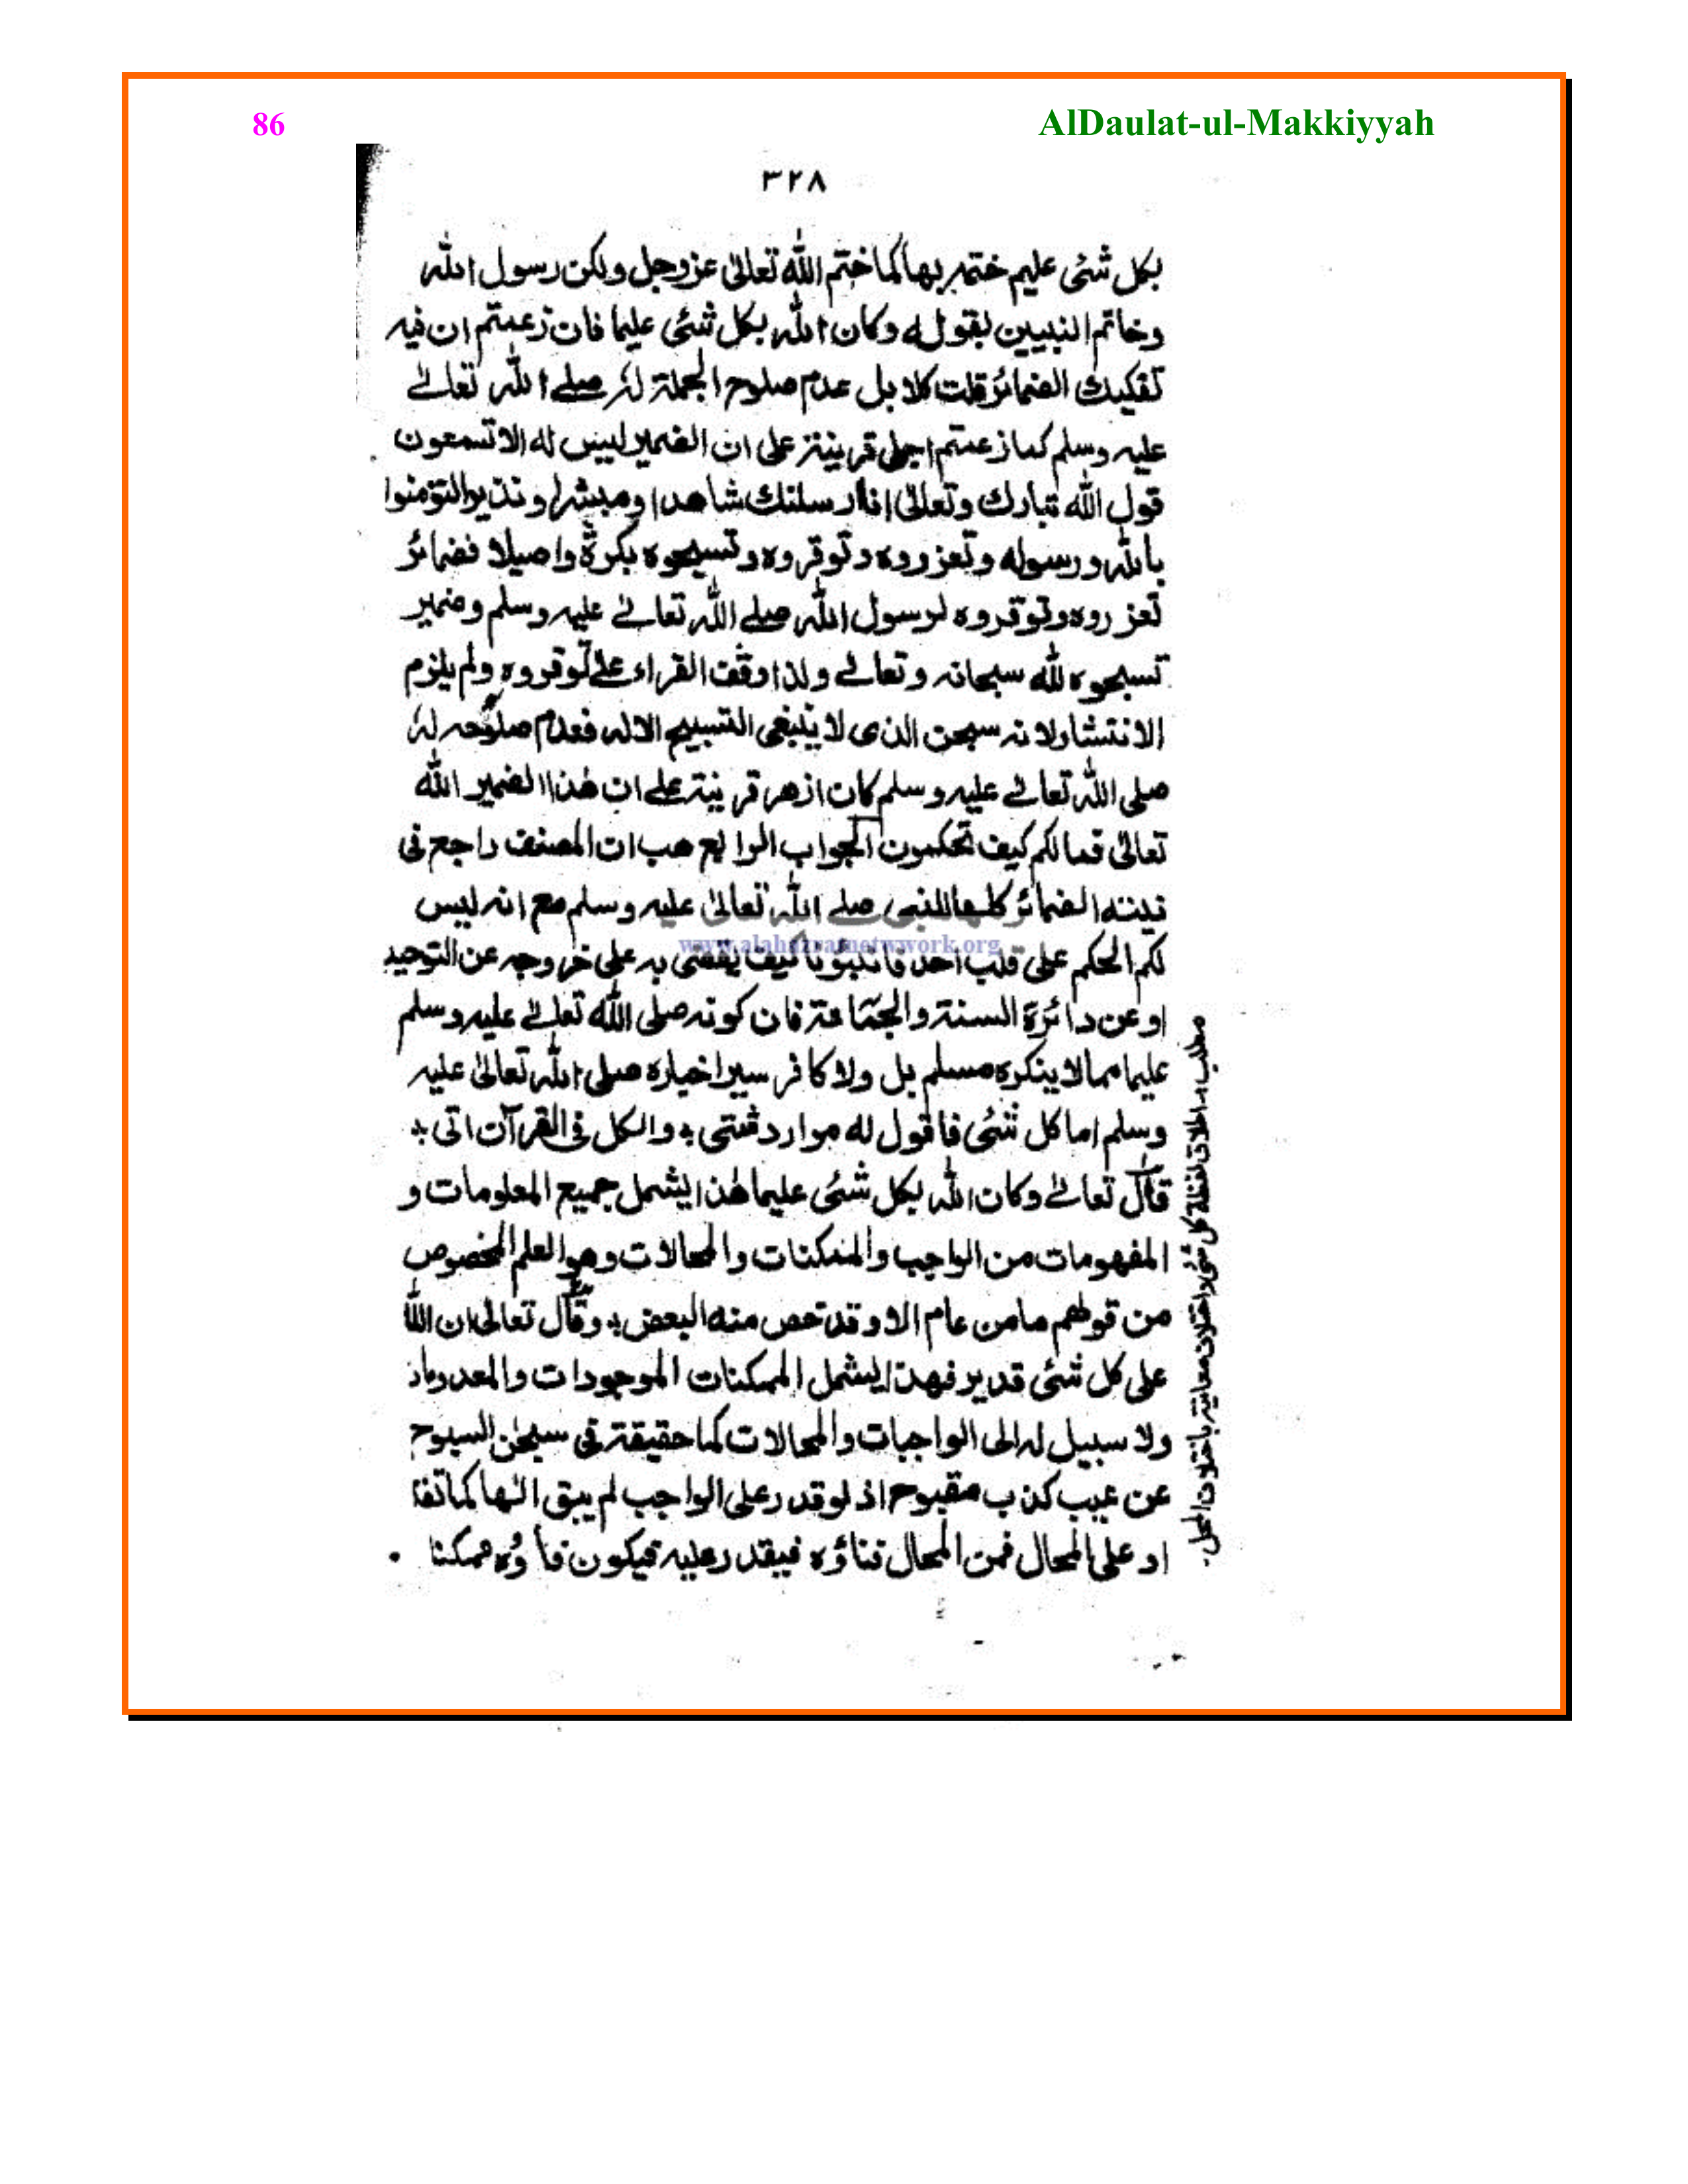 86
AlDaulat-ul-Makkiyyah
٣٢٨
بكل شئى عليم ختمہ بها كما ختم الله تعالیٰ عزوجل ولكن رسول الله
وخاتم النبيين بقوله وكان الله بكل شئى عليما فان زعمتم ان فيه
تفكيك الضمائر قلت كلا بل عدم صلوح الجملة لہٗ صلے الله تعالےٰ
عليہ وسلم كما زعمتم اجلی قرينة علی ان الضمير ليس له الا تسمعون
قول الله تبارك وتعالیٰ انا ارسلنك شاهدا ومبشرا ونذيرا لتؤمنوا
بالله ورسوله وتعزروه وتوقروه وتسبحوه بكرة واصيلا فضمائر
تعزروه وتوقروه لرسول الله صلے الله تعالےٰ عليہ وسلم وضمير
تسبحوه لله سبحانہ وتعالےٰ ولذا وقف القراء علے توقروه ولم يلزم
الانتشار لانہ سبحن الذی لا ينبغی التسبيح الا له فعدم صلوحہ لہٗ
صلی الله تعالےٰ عليہ وسلم كان ازهر قرينة علے ان هٰذا الضمير الله
تعالیٰ فمالكم كيف تحكمون الجواب الرابع هب ان المصنف راجع فی
نيته الضمائر كلها للنبی صلے الله تعالیٰ عليہ وسلم مع انہ ليس
لكم الحكم علی قلب احد فانبئونا كيف يقضی به علی خروجہ عن التوحيد
www.alahazratnetwork.org
او عن دائرة السنة والجماعة فان كونہ صلی الله تعالےٰ عليہ وسلم
عليما مما لا ينكره مسلم بل ولا كافر سير اخباره صلی الله تعالیٰ عليہ
وسلم اما كل شئى فاقول له موارد شتی ؞ والكل فی القرآن اتی ؞
قال تعالےٰ وكان الله بكل شئى عليما هٰذا يشمل جميع المعلومات و
المفهومات من الواجب والممكنات والمحالات وهو العلم المخصوص
من قولهم ما من عام الا وقد خص منه البعض ؞ وقال تعالیٰ ان الله
علی كل شئى قدير فهذا يشمل الممكنات الموجودات والمعدومات
ولا سبيل له الی الواجبات والمحالات كما حقيقة فی سبحٰن السبوح
عن عيب كذب مقبوح اذ لو قدر علی الواجب لم يبق الٰها كما تفا
او علی المحال فمن المحال فناؤه فيقدر عليہ فيكون فناؤه ممكنا
مطلب اطلاق لفظة كل شئى واختلاف معانيہ باختلاف المحل